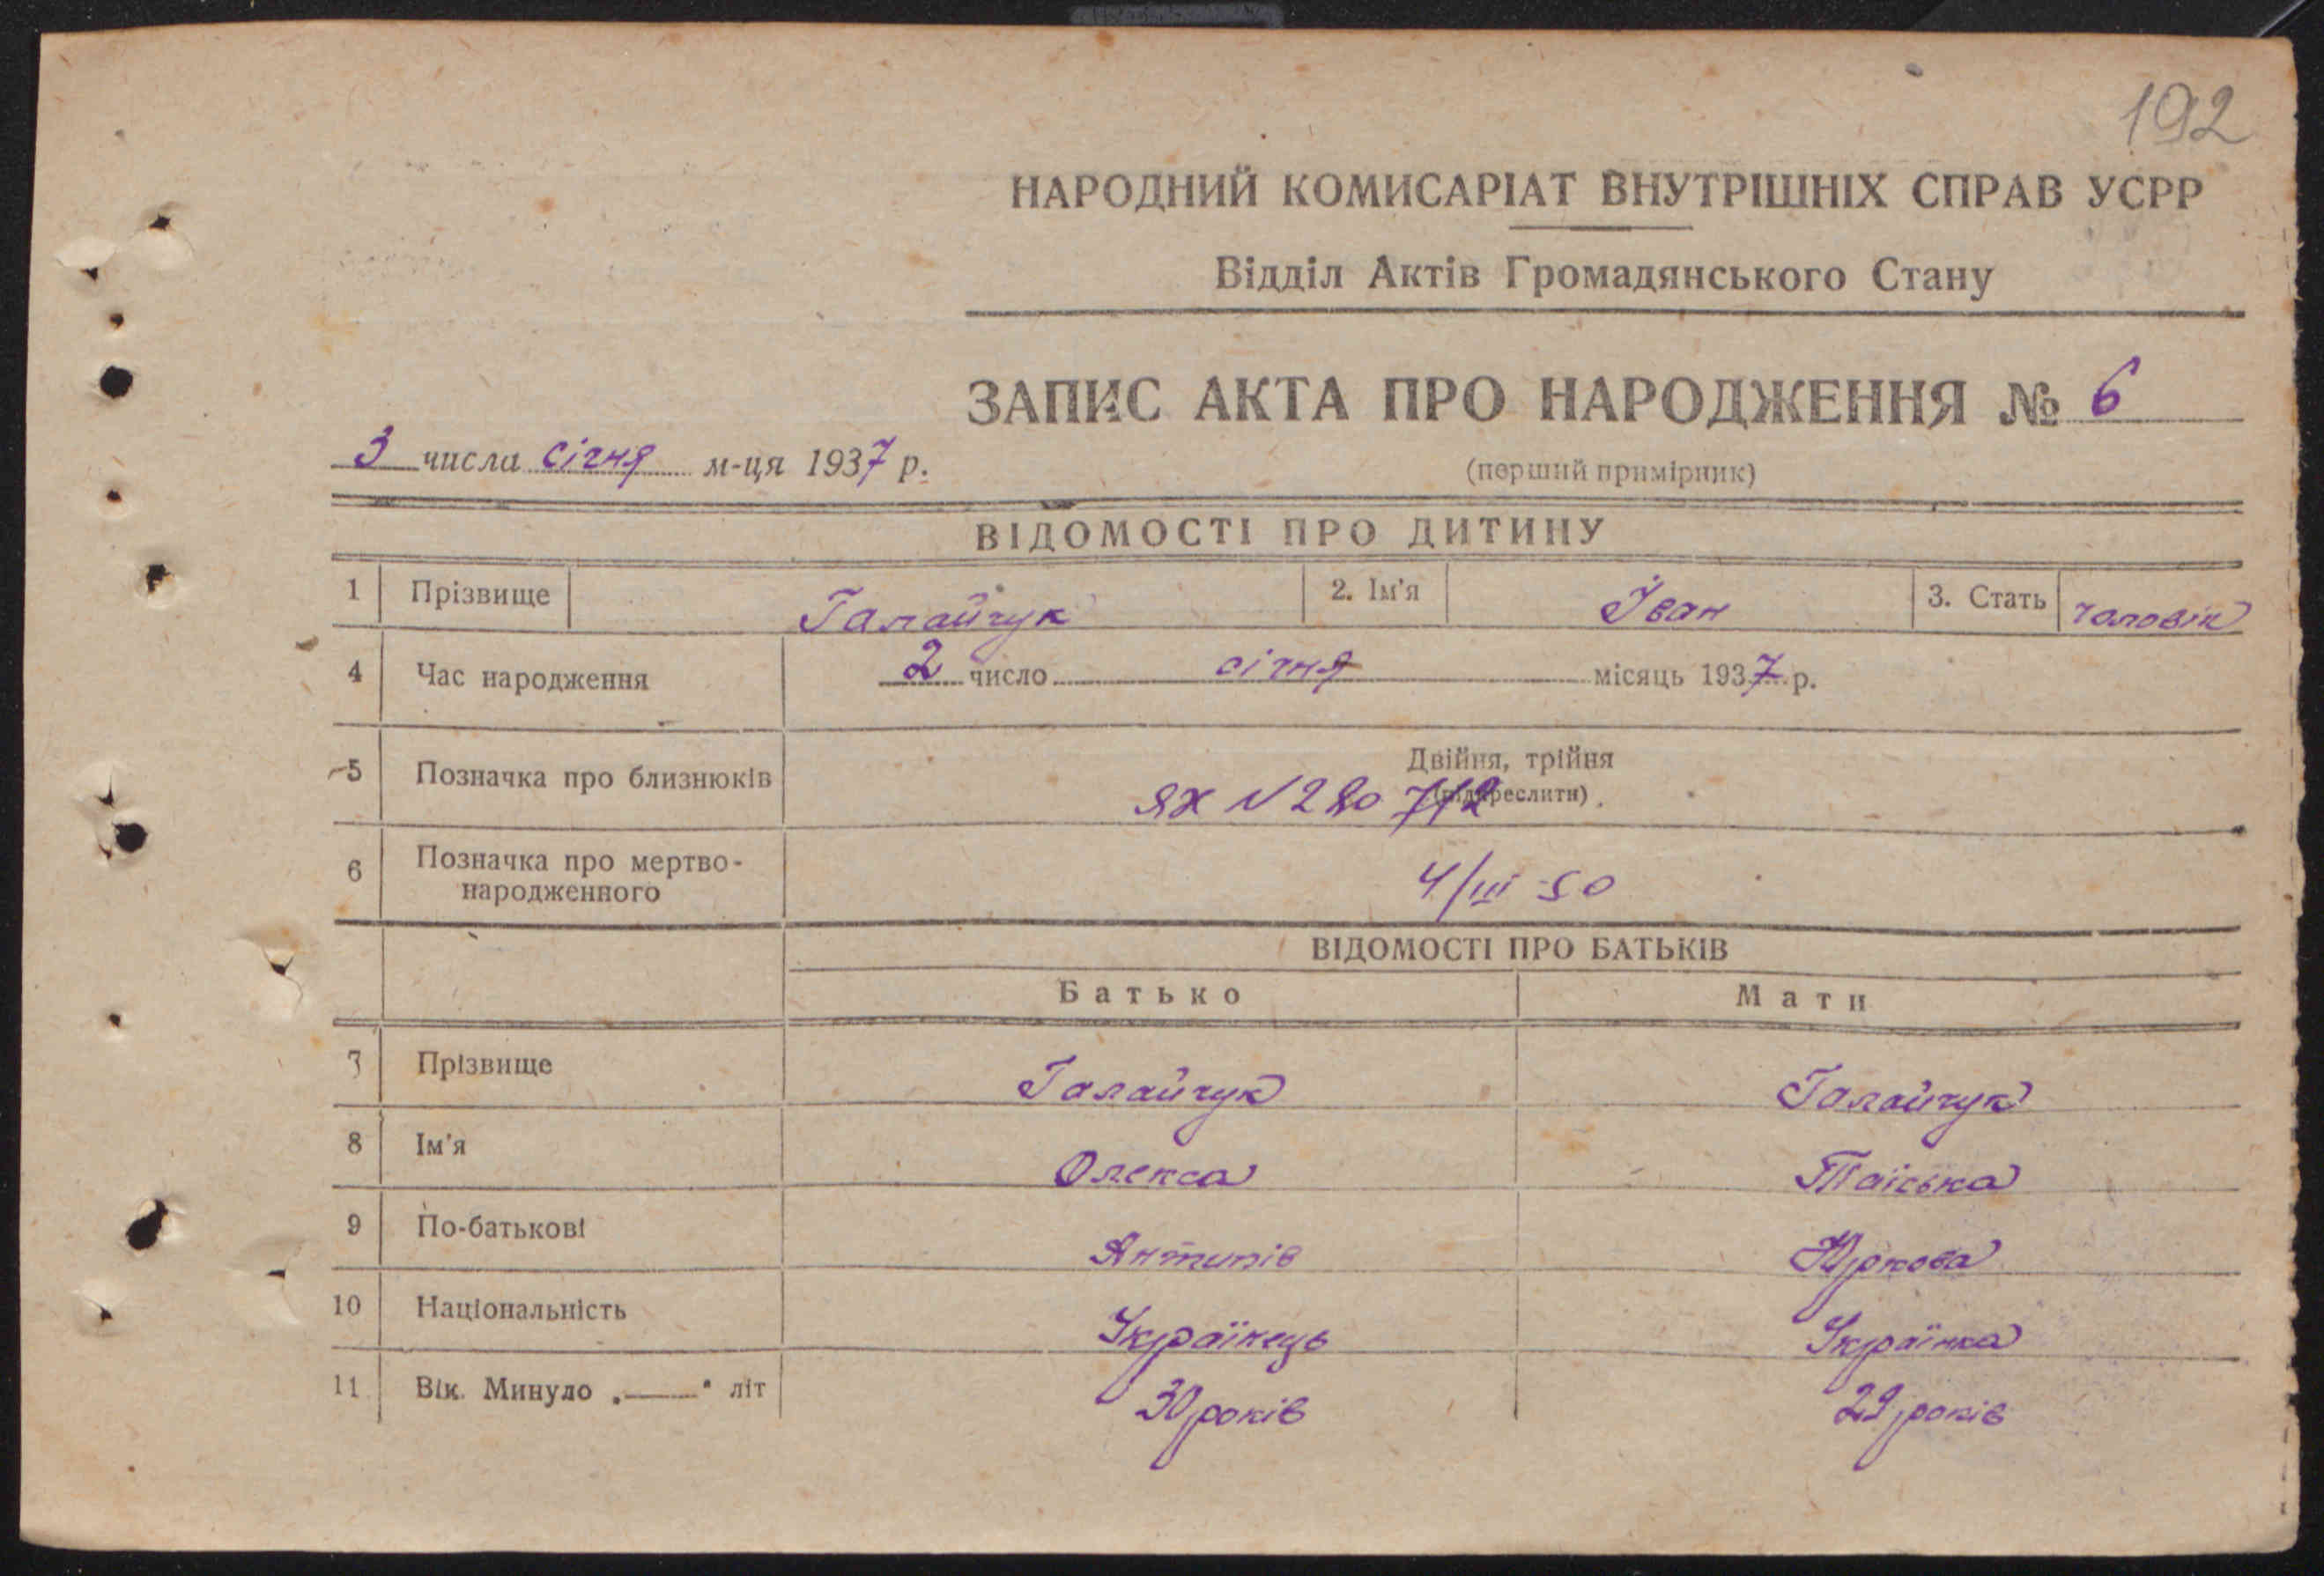 192
НАРОДНИЙ КОМИСАРІАТ ВНУТРІШНІХ СПРАВ УСРР
Відділ Актів Громадянського Стану
ЗАПИС АКТА ПРО НАРОДЖЕННЯ № 6
3 числа січня м-ця 1937 р.
(перший примірник)
ВІДОМОСТІ ПРО ДИТИНУ
1 Прізвище Галайчук 2. Ім'я Іван 3. Стать чоловік
4 Час народження 2 число січня місяць 1937 р.
5 Позначка про близнюків Двійня, трійня
(підкреслити)
ЯЖ N 280 712
6 Позначка про мертво-
народженного 4/III 50
ВІДОМОСТІ ПРО БАТЬКІВ
Батько Мати
7 Прізвище Галайчук Галайчук
8 Ім'я Олекса Таїська
9 По-батькові Антипів Юркова
10 Національність Українець Українка
11 Вік. Минуло „——" літ 30 років 29 років